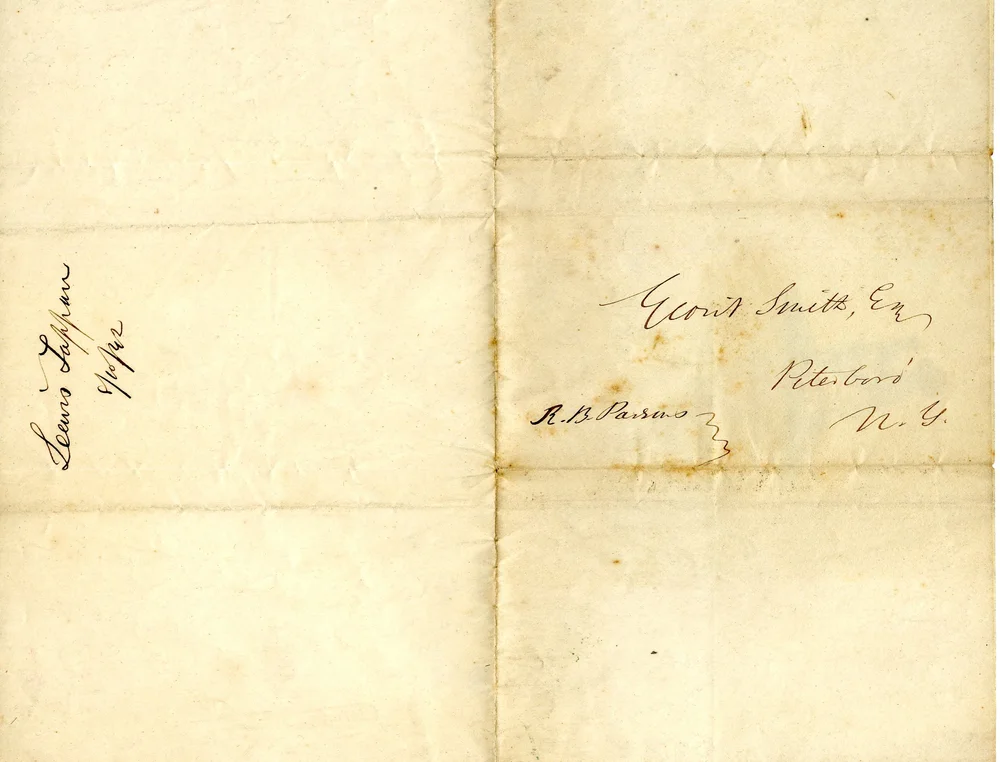 Lewis Tappan
Gerrit Smith, Esq
Peterboro'
R. B. Parsons
N. Y.